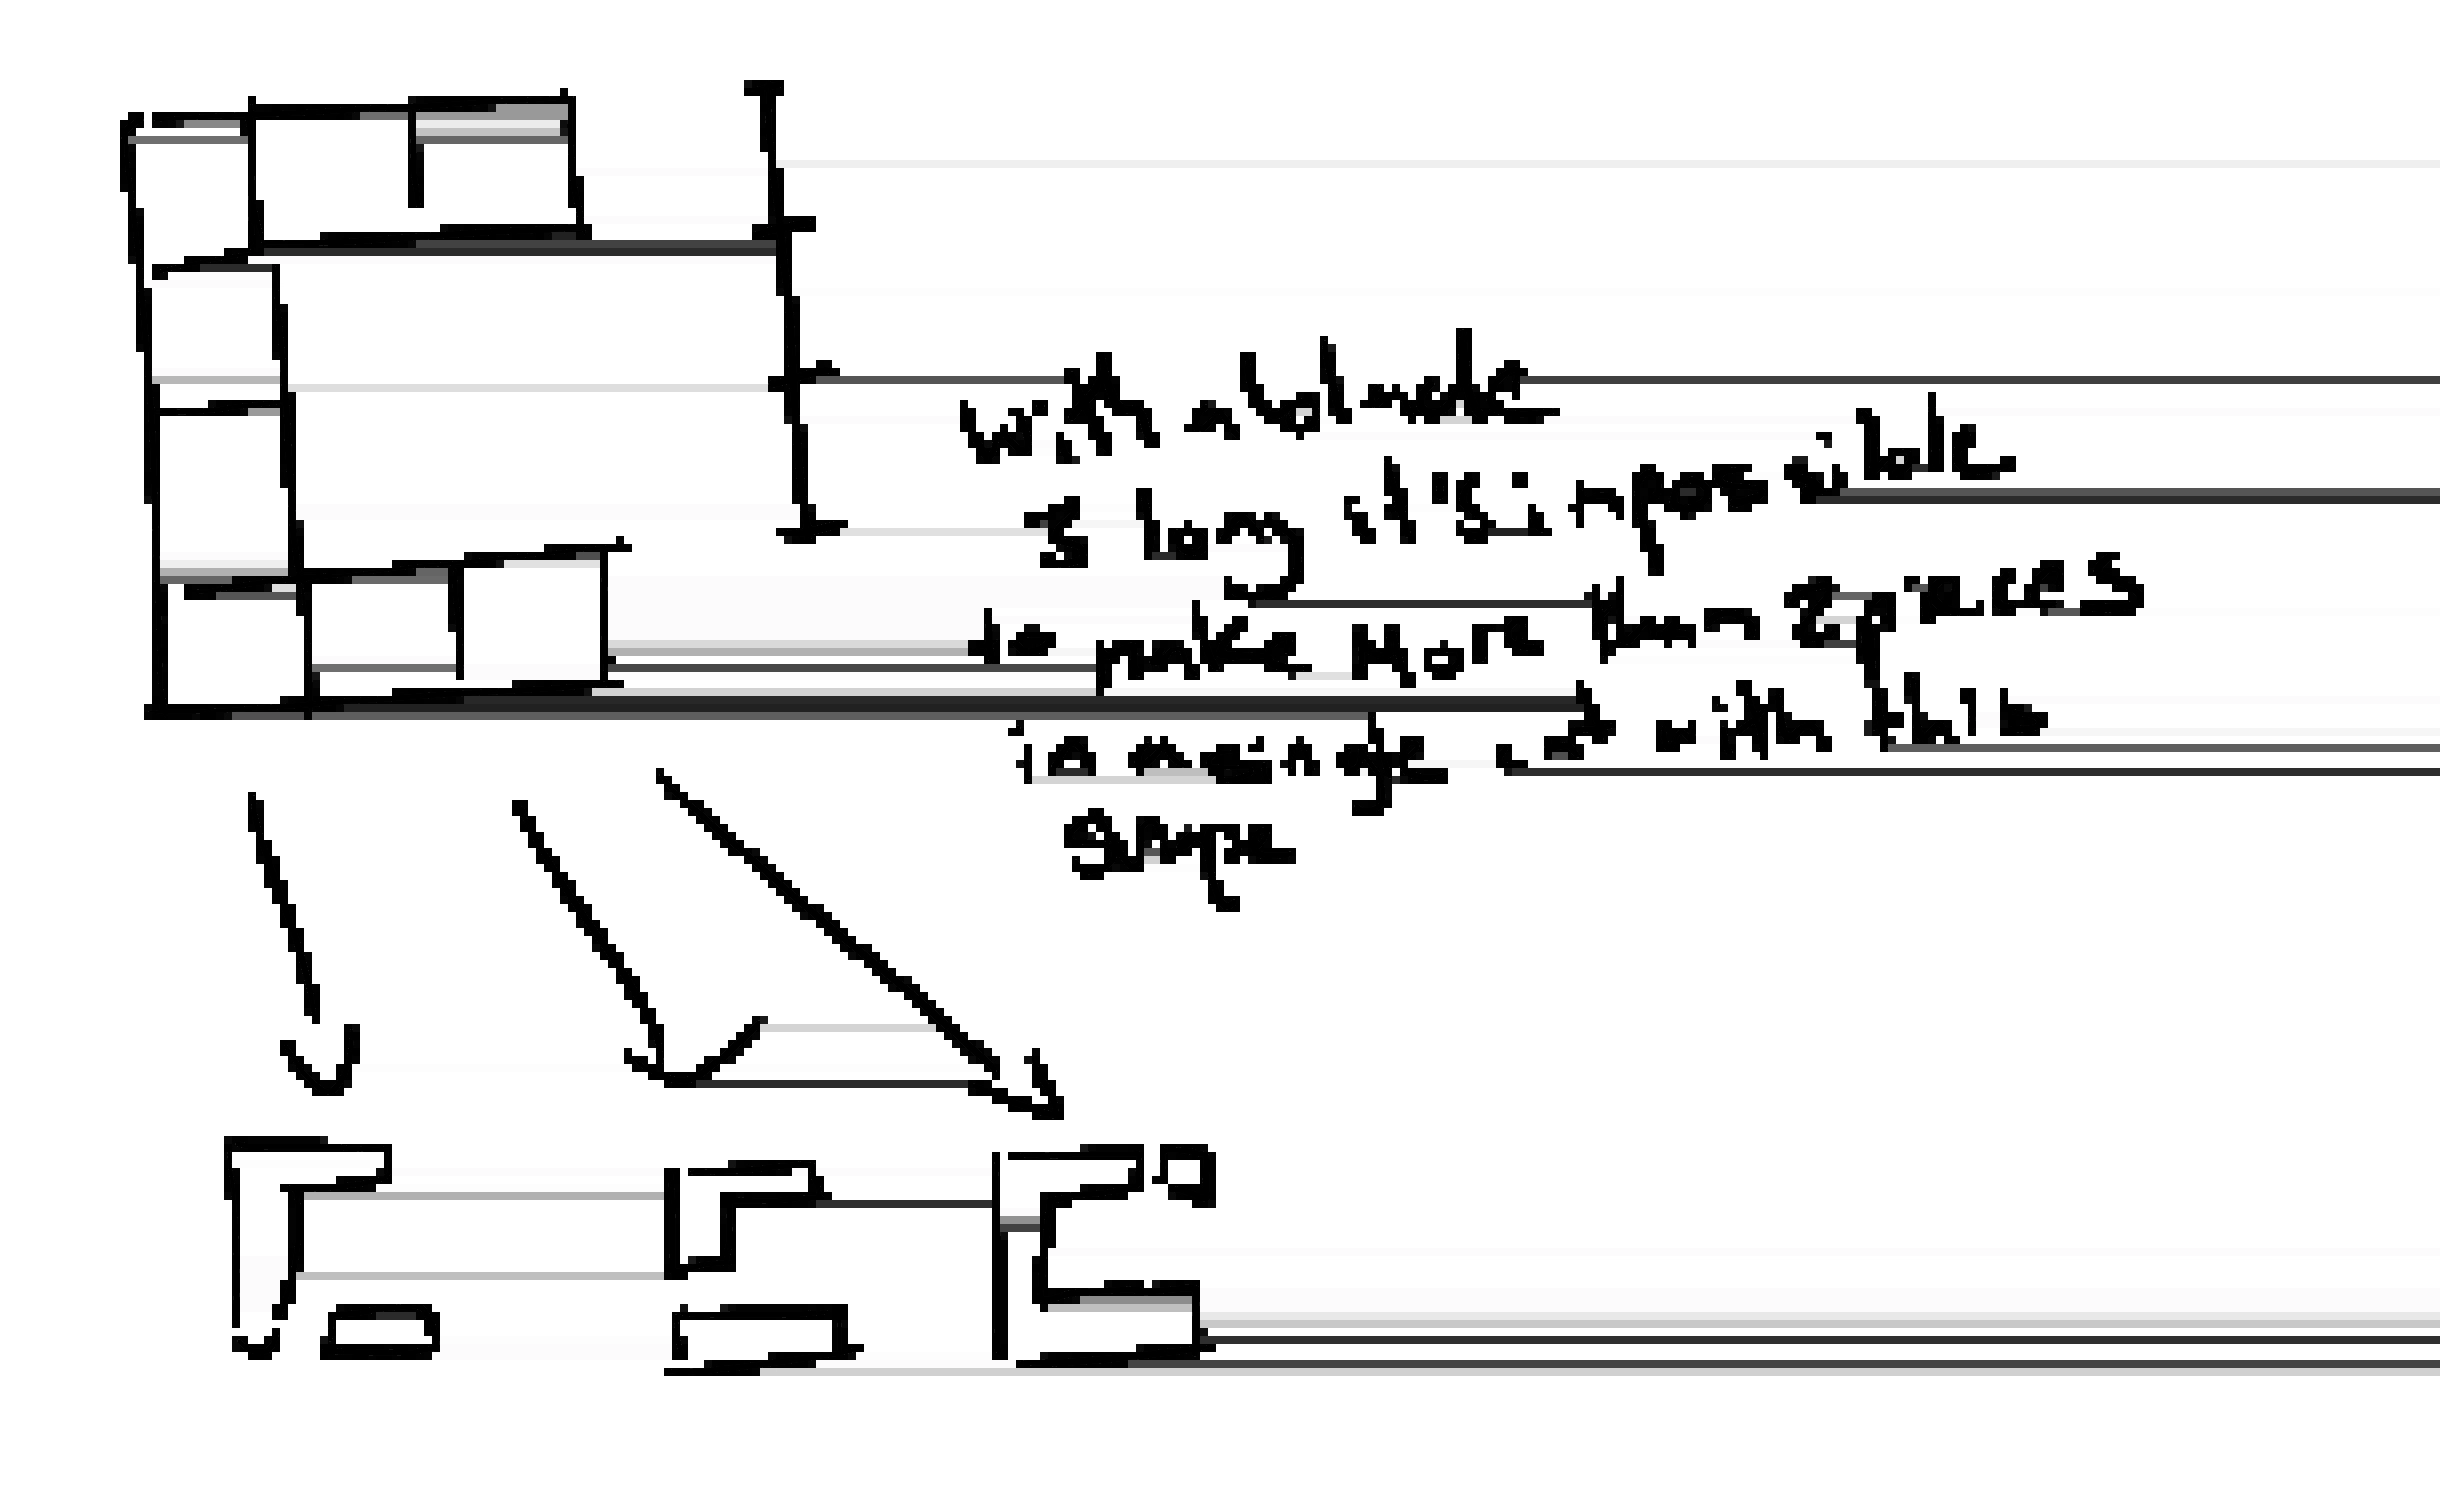 with a blade
3 long it's impossible
to make more than 2 pieces
in a single cut with this
shape